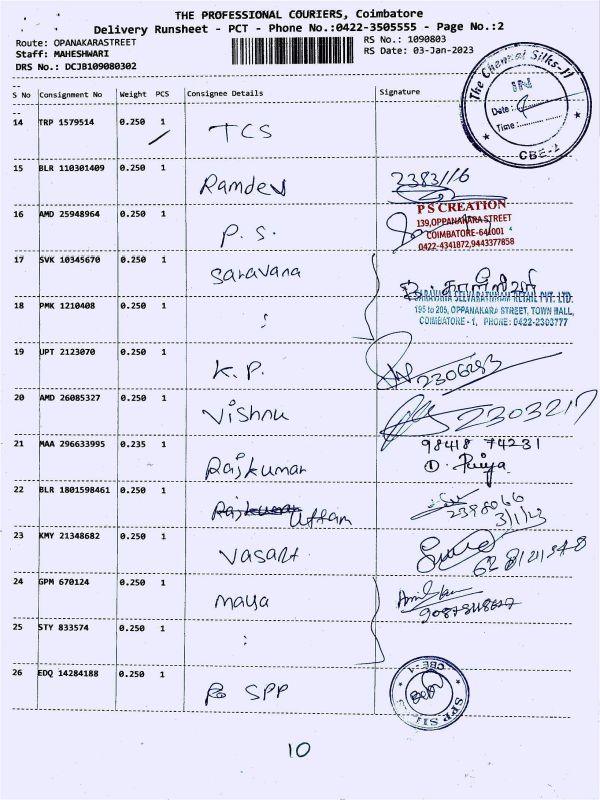 THE PROFESSIONAL COURIERS, Coimbatore
Delivery Runsheet - PCT - Phone No.:0422-3505555 - Page No.:2
Route: OPANAKARASTREET RS No.: 1090803
Staff: MAHESHWARI RS Date: 03-Jan-2023
DRS No.: DCJB109080302
The Chennai Silks-JJ
IN
Date :
Time :
CBE-1
S No Consignment No Weight PCS Consignee Details Signature
14 TRP 1579514 0.250 1 TCS
15 BLR 110301409 0.250 1 Ramdev 2383116
16 AMD 25948964 0.250 1 P.S.
P S CREATION
139,OPPANAKARA STREET
COIMBATORE-641001
0422-4341872,9443377858
17 SVK 10345670 0.250 1 Saravana
SARAVANA SELVARATHNAM RETAIL PVT. LTD.
195 to 205, OPPANAKARA STREET, TOWN HALL,
COIMBATORE - 1, PHONE: 0422-2303777
18 PMK 1210408 0.250 1 :
19 UPT 2123070 0.250 1 K.P. 2306283
20 AMD 26085327 0.250 1 Vishnu 2303217
21 MAA 296633995 0.235 1 Rajkumar 98418 74231
D. Priya
22 BLR 1801598461 0.250 1 Uttam 2398066
3/1/23
23 KMY 21348682 0.250 1 Vasant
24 GPM 670124 0.250 1 Maya
25 STY 833574 0.250 1 :
26 EDQ 14284188 0.250 1 SPP
CBE-1
SPP SIL
10